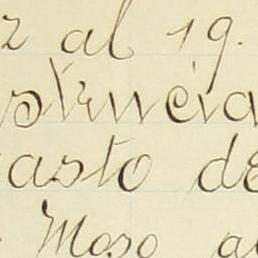 2 al 19.
strucia
asto de
Moso a